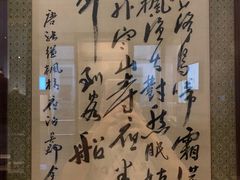 落烏啼霜滿
楓漁火對愁眠姑
外寒山寺夜半
到客船
唐張繼楓橋夜泊